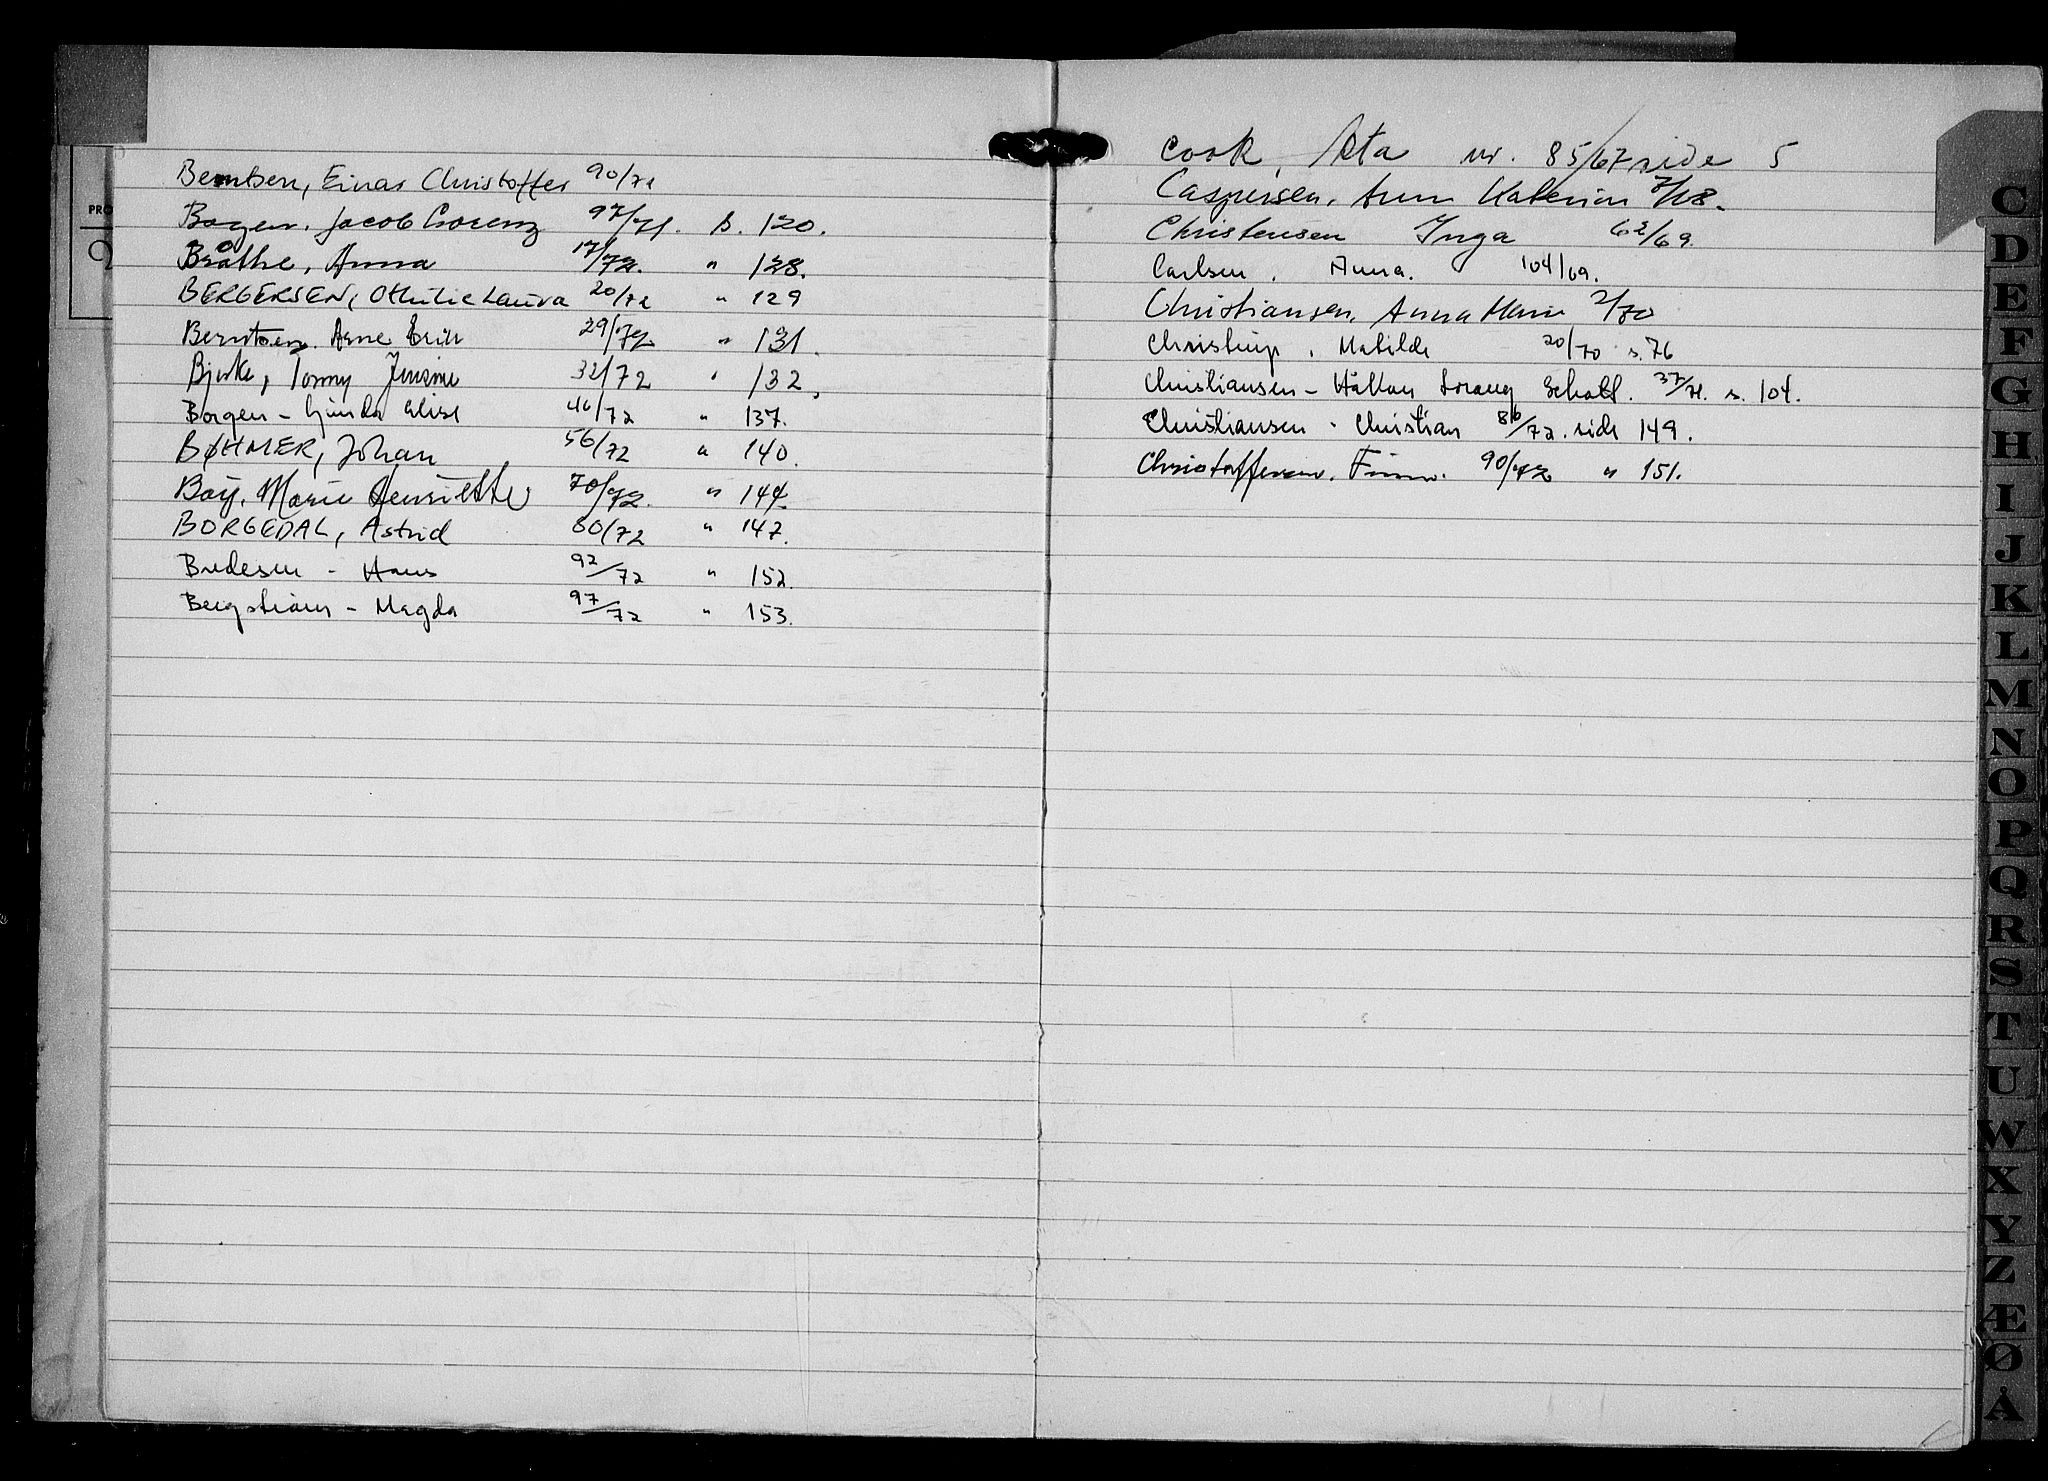 Berntsen, Einar Christoffer 90/71
Bogen, Jacob Lorenz 97/71. s. 120.
Bråthe, Anna 17/72. " 128.
BERGERSEN, Othilie Laura 20/72 " 129
Berntsen, Arne Erik 29/72 " 131.
Bjerke, Tommy 32/72 " 132.
Borgen - Gunda Elise 46/72 " 137.
BØHMER, Johan 56/72 " 140.
Bøy, Marie Henriette 70/72. " 144.
BORGEDAL, Astrid 80/72 " 147.
Bredesen - Hans 92/72 " 152.
Bergstrøm - Magda 97/72 " 153.
Cook, Asta nr. 85/67 side 5
Caspersen, Anna Katerina 7/68.
Christensen Inga 62/69.
Carlsen, Anna. 104/69.
Christiansen, Anna Marie 2/70
Christrup, Matilde 20/70 s. 76
Christiansen - Håkon Lorang 37/71. s. 104.
Christiansen - Christian 86/72. side 149.
Christoffersen. Finn. 90/72 " 151.
PRO
C
D
E
F
G
H
I
J
K
L
M
N
O
P
Q
R
S
T
U
W
X
Y
Z
Æ
Ø
Å